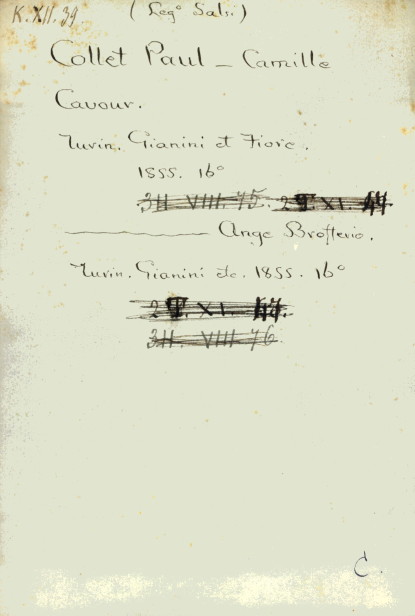 K. XII. 39 (Leg° Salv.)
Collet Paul – Camille
Cavour.
Turin. Gianini et Fiore.
1855. 16°
3H VIII 75. 2T. XI. 44
Ange Brofferio.
Turin. Gianini etc. 1855. 16°
2T. XI. 44.
3H. VIII 76
C.